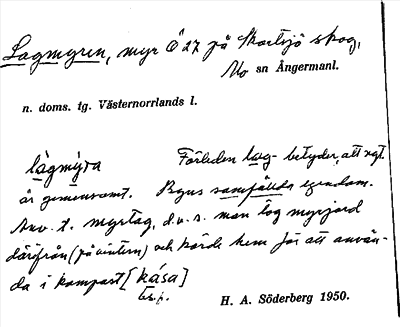 Lagmyren, myr Ö 27 på Skortsjö skog,
Mo sn Ångermanl.
n. doms. tg. Västernorrlands l.
lägmýra Förleden lag- betyder, att ngt.
är gemensamt. Byns samfällda egendom.
Anv. t. myrtag, d.v.s. man tog myrjord
därifrån (på vintern) och körde hem för att använ-
da i kompost [kása]
H. A. Söderberg 1950.